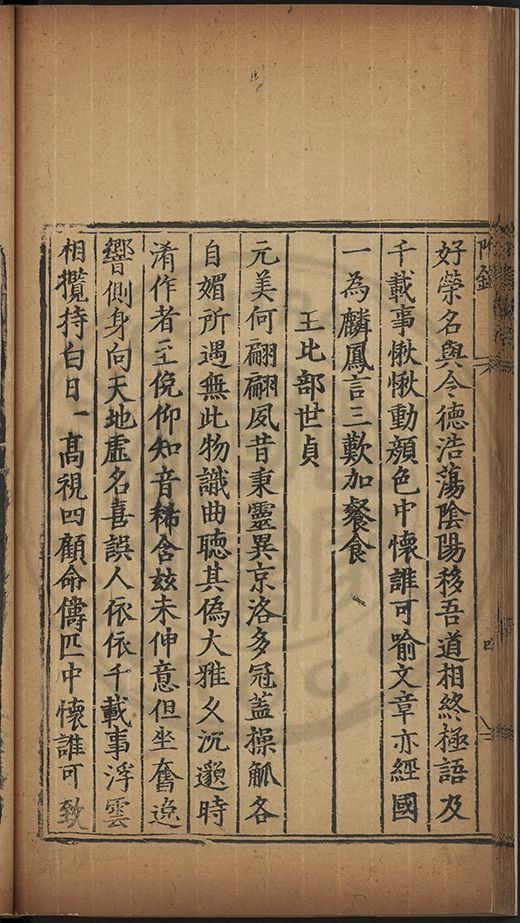 附錄
四
好榮名與令德浩蕩陰陽移吾道相終極語及
千載事愀愀動顏色中懷誰可喻文章亦經國
一為麟鳳言三歎加餐食
王比部世貞
元美何翩翩夙昔秉靈異京洛多冠蓋操觚各
自媚所遇無此物識曲聽其偽大雅久沉邈時
淆作者至俛仰知音稀含玆未伸意但坐奮逸
響側身向天地虛名喜誤人依依千載事浮雲
相攬持白日一高視四顧命儔匹中懷誰可致